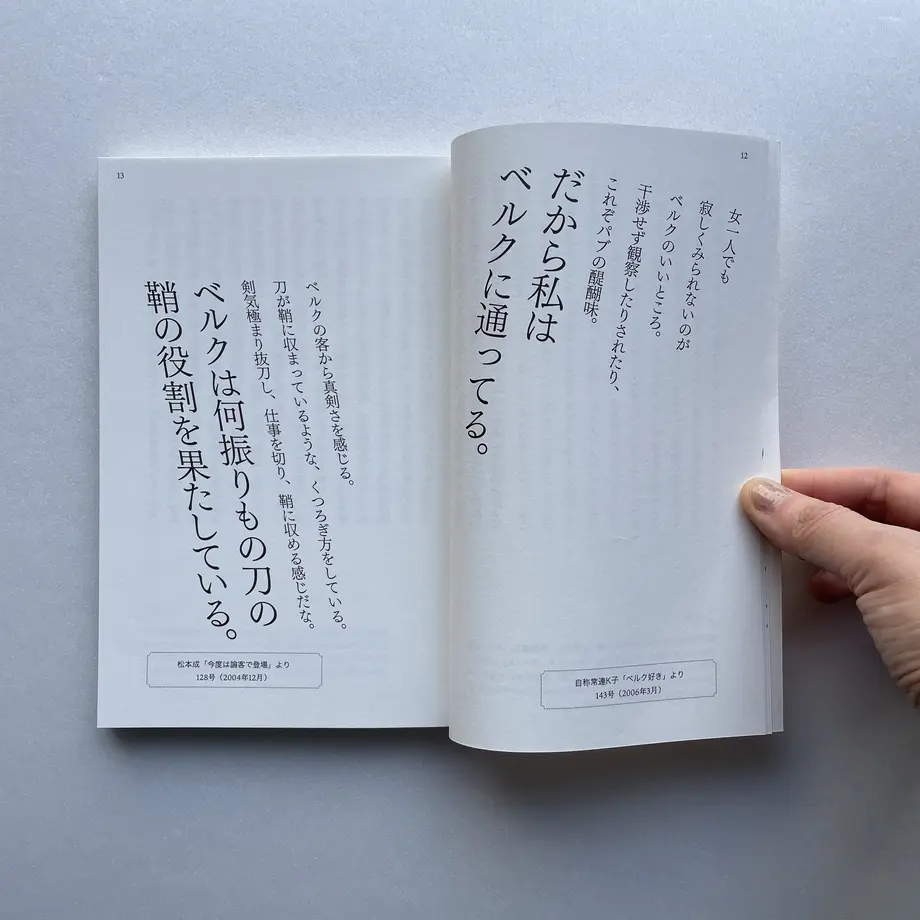 12
女一人でも
寂しくみられないのが
ベルクのいいところ。
干渉せず観察したりされたり、
これぞパブの醍醐味。
だから私は
ベルクに通ってる。
自称常連K子「ベルク好き」より
143号（2006年3月）
13
ベルクの客から真剣さを感じる。
刀が鞘に収まっているような、くつろぎ方をしている。
剣気極まり抜刀し、仕事を切り、鞘に収める感じだな。
ベルクは何振りもの刀の
鞘の役割を果たしている。
松本成「今度は論客で登場」より
128号（2004年12月）